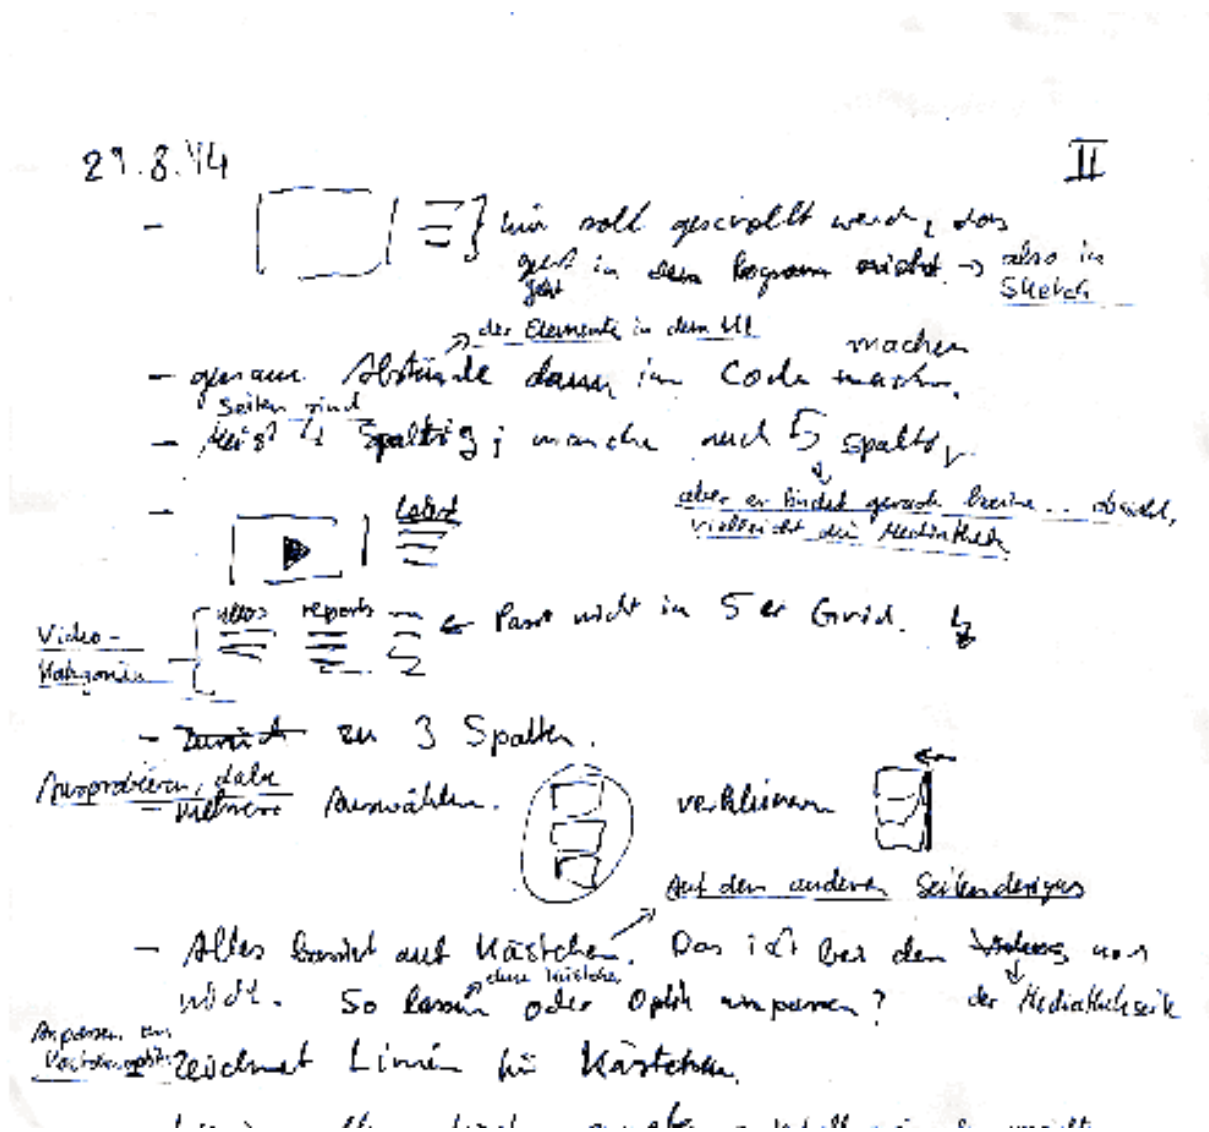 29.8.14 II
- hier soll gescrollt werden, das
geht in dem Programm nicht. → also in
geht Sketch
der Elemente in dem UI
machen
- genaue Abstände dann im Code machen.
Seiten sind
- Meist 4 Spaltig; manche auch 5 spaltig
aber er findet gerade keine .. obwohl,
vielleicht die Mediathek
- latest
Video- videos reports ← Passt nicht in 5er Grid.
Kategorien
- Zurück zu 3 Spalten.
Ausprobieren, dabei
- mehrere Auswählen. verkleinern
Auf den anderen Seitendesigns
- Alles basiert auf Kästchen. Das ist bei den Videos nun
ohne Kästchen
nicht. So lassen oder Optik anpassen? der Mediathekseite
Anpassen an
Kästchenoptik
- Zeichnet Linien für Kästchen.